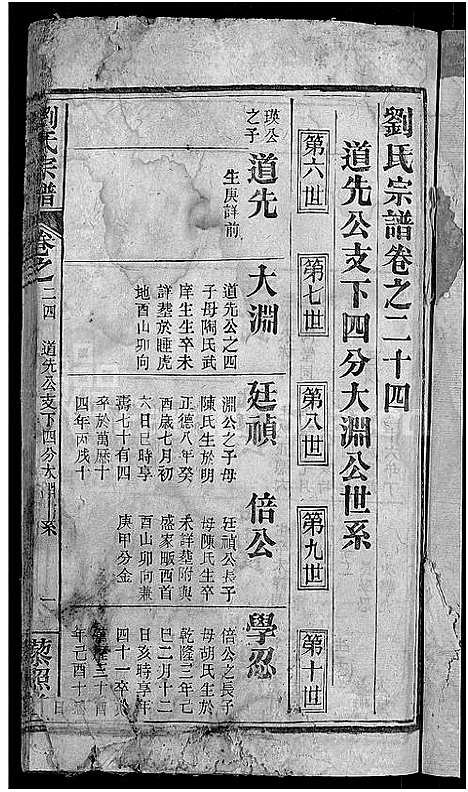 劉氏宗譜卷之二十四
道先公支下四分大淵公世系
第六世
第七世
第八世
第九世
第十世
瑛公
之子
道先
生庚詳前
大淵
道先公之四
子母陶氏武
庠生生卒未
詳墓於睡虎
地酉山卯向
廷禎
淵公之子母
陳氏生於明
正德八年癸
酉歲七月初
六日巳時享
壽七十有四
卒於萬厯十
四年丙戌十
倍公
廷禎公長子
母陳氏生卒
未詳墓附與
盛家畈酉首
酉山卯向兼
庚甲分金
學忍
倍公之長子
母胡氏生於
乾隆三年己
巳二月十二
日亥時享年
四十一卒於
三十
年己酉十
劉氏宗譜
卷之二四
道先公支下四分大淵
系
一
藜照